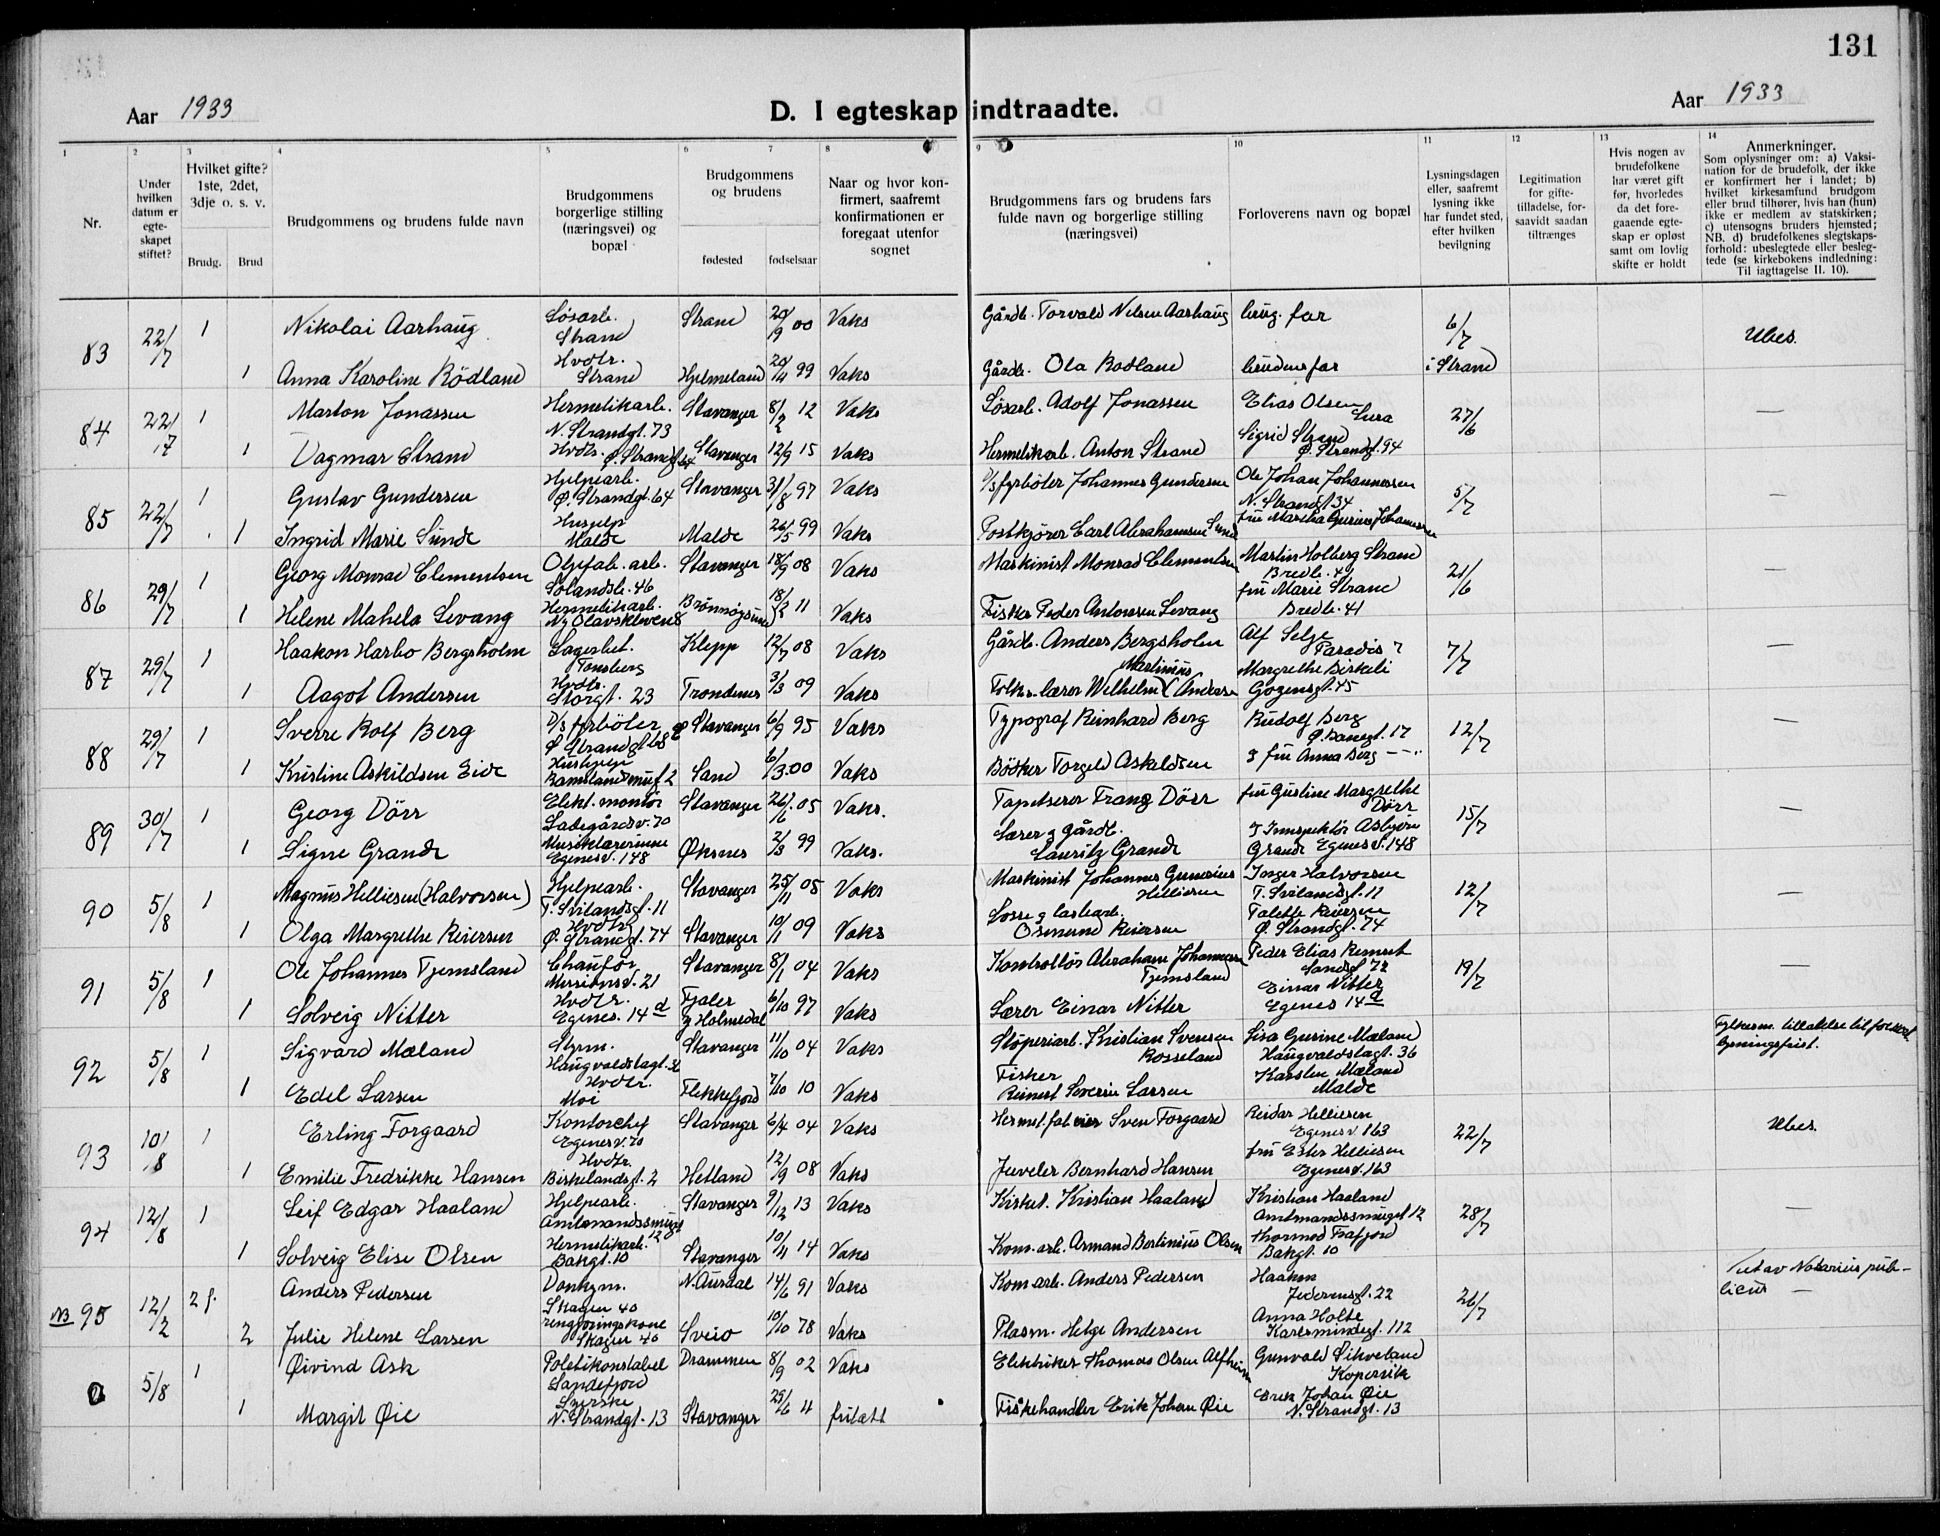 131
Aar 1933
D. I egteskap indtraadte.
Aar 1933
1 2 3 4 5 6 7 8 9 10 11 12 13 14
Nr.
Under hvilken datum er egte-skapet stiftet?
Hvilket gifte? 1ste, 2det, 3dje o. s. v.
Brudg. Brud
Brudgommens og brudens fulde navn
Brudgommens borgerlige stilling (næringsvei) og bopæl
Brudgommens og brudens
fødested fødselsaar
Naar og hvor kon-firmert, saafremt konfirmationen er foregaat utenfor sognet
Brudgommens fars og brudens fars fulde navn og borgerlige stilling (næringsvei)
Forloverens navn og bopæl
Lysningsdagen eller, saafremt lysning ikke har fundet sted, efter hvilken bevilgning
Legitimation for gifte-tilladelse, for-saavidt saadan tiltrænges
Hvis nogen av brudefolkene har været gift før, hvorledes da det fore-gaaende egte-skap er opløst samt om lovlig skifte er holdt
Anmerkninger.
Som oplysninger om: a) Vaksi-nation for de brudefolk, der ikke er konfirmert her i landet; b) hvilket kirkesamfund brudgom eller brud tilhører, hvis han (hun) ikke er medlem av statskirken; c) utensogns bruders hjemsted; NB. d) brudefolkenes slegtskaps-forhold: ubeslegtede eller besleg-tede (se kirkebokens indledning: Til iagttagelse II. 10).
83 22/7 1 Nikolai Aarhaug Løsarb. Strand Strand 20/9 00 Vaks Gårdb. Torvald Nilsen Aarhaug brug. far 6/7 Ubes.
1 Anna Karoline Rödland Hvdtr. Strand Hjelmeland 20/4 99 Vaks Gårdb. Ola Rødland brudens far i Strand
84 22/7 1 Marton Jonassen Hermetikarb. N. Strandgt. 73 Stavanger 8/2 12 Vaks Løsarb. Adolf Jonassen Elias Olsen Lura 27/6 —
1 Dagmar Strand Hvdtr. Ø. Strandgt. 94 Stavanger 12/9 15 Vaks Hermetikarb. Anton Strand Sigrid Strand Ø. Strandgt. 94
85 22/7 1 Gustav Gundersen Hjelpearb. Ø. Strandgt. 64 Stavanger 31/8 97 Vaks D/s fyrböter Johannes Gundersen Ole Johan Johannessen N. Strandgt 34 5/7 —
1 Ingrid Marie Sunde Hushjelp Malde Malde 26/5 99 Vaks Postkjører Carl Abrahamsen Sunde fru Martha Gurine Johannessen
86 29/7 1 Georg Monrad Clementsen Olpfab. arb. Solandsb. 46 Stavanger 18/9 08 Vaks Maskinist Monrad Clementsen Martin Holberg Strand Bredb. 41 21/6 —
1 Helene Mahela Levang Hermetikarb. Ny Olavskleven 8 Brönnøysund 18/8 11 Vaks Fisker Peder Antonsen Levang fru Marie Strand Bredb. 41
87 29/7 1 Haakon Harbo Bergsholm Lagerbet. Tønsberg Klepp 12/7 08 Vaks Gårdb. Anders Bergsholm Alf Selge Paradis 7 7/7 —
1 Aagot Andersen Hvdtr. Storgt. 23 Trondenes 3/3 09 Vaks Folke. lærer Wilhelm Martinius Andersen Margrethe Birkeli Gozensgt. 45
88 29/7 1 Sverre Rolf Berg D/s fyrböter Ø Strandgt 68 Stavanger 6/9 95 Vaks Typograf Reinhard Berg Rudolf Berg Ø. Banegt. 17 12/7 —
1 Kristine Askildsen Eide Hushjelp Ramslandsmug 2 Sand 6/3 00 Vaks Bödker Torgeld Askildsen g fru Anna Berg —
89 30/7 1 Georg Dörr Elekt. montör Ladegårdsv. 70 Stavanger 26/6 05 Vaks. Tapetserer Franz Dörr fru Gustine Margrethe Dörr 15/7 —
1 Signe Grande Musiklærerinne Egenesv. 148 Øksnes 2/3 99 Vaks. Lærer g gårdb. Lauritz Grande g Innspektör Asbjörn Grande Egenesv. 148
90 5/8 1 Magnus Helliesen (Halvorsen) Hjelpearb. T. Svilandsgt. 11 Stavanger 25/11 05 Vaks Maskinist Johannes Gunerius Helliesen Inger Halvorsen T. Svilandsgt. 11 12/7 —
1 Olga Margrethe Reiersen Hvdtr. Ø. Strandgt. 74 Stavanger 10/1 09 Vaks Losse g lastearb. Osmund Reiersen Talette Reiersen Ø. Strandgt. 74
91 5/8 1 Ole Johannes Tjemsland Chaufør Missionsv. 21 Stavanger 8/1 04 Vaks Kontrollör Abraham Johannessen Tjemsland Peder Elias Remset Sandsgt 72 19/7 —
1 Solveig Nitter Hvdtr. Egenes. 14 a Fjaler y Holmedal 6/10 97 Vaks Lærer Einar Nitter Einar Nitter Egenes 14 a
92 5/8 1 Sigvard Mæland Styrm. Haugvaldstagt. 36 Stavanger 11/10 04 Vaks Støperiarb. Kristian Svensen Rosseland Lisa Gurine Mæland Haugvaldstagt. 36 Fylkesm. tillatelse til forkort. lysningsfrist.
1 Edel Larsen Hvdtr. Moi Flekkefjord 7/10 10 Vaks Fisker Reinert Severin Larsen Karsten Mæland Malde
93 10/8 1 Erling Forgaard Kontorchef Egenesv. 70 Stavanger 6/4 04 Vaks Hermet. fab eier Sven Forgaard Reidar Helliesen Egenesv. 163 22/7 Ubes.
1 Emilie Fredrikke Hansen Hvdtr. Birkelandsgt. 2 Hetland 12/9 08 Vaks Juveler Bernhard Hansen fru Ester Helliesen Egenesv. 163
94 12/8 1 Leif Edgar Haaland Hjelpearb. Amtmandssmuget 12 Stavanger 9/12 13 Vaks Kirket. Kristian Haaland Kristian Haaland Amtmandssmuget 12 28/7 —
1 Solveig Elise Olsen Hermetikarb. Bakgt. 10 Stavanger 10/11 14 Vaks Kom. arb. Armand Bertinius Olsen Thormod Frafjord Bakgt. 10
NB 95 12/2 2 g. Anders Pedersen Donkym. Skagen 40 N. Aurdal 14/6 91 Vaks Kom arb. Anders Pedersen Haakon Pedersensgt. 22 26/7 Viet av Notarius pub-licus —
2 Julie Helene Larsen rengjöringskone Skagen 40 Sveio 10/10 78 Vaks Plasm. Helge Andersen Anna Holte Karlsmindegt. 112
0 5/8 1 Øivind Ask Politikonstabel Sandefjord Drammen 8/9 02 Vaks Elektriker Thomas Olsen Alfheim Gunvald Sikveland Kopervik
1 Margit Øie Syerske N. Strandgt. 13 Stavanger 29/6 11 fritatt Fiskehandler Erik Johan Øie Erik Johan Øie N. Strandgt. 13